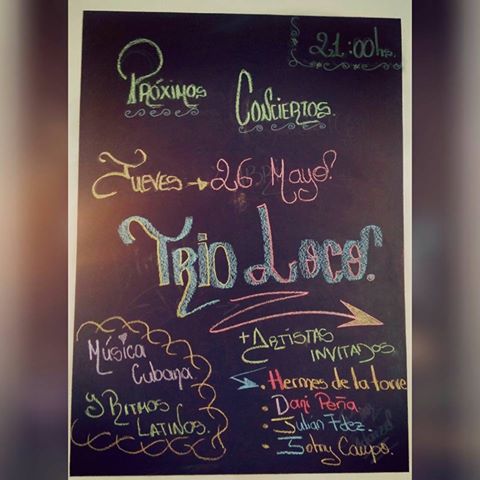 21:00hs.
PRÓXIMOS
CONCIERTOS.
JUEVES → 26 Mayo!
TRIO LOCO!
+ ARTISTAS
INVITADOS
Música
Cubana
Y RITMOS
LATINOS.
. Hermes de la torre
. Dani Peña
. Julián Fdez.
. Jotny Campo.